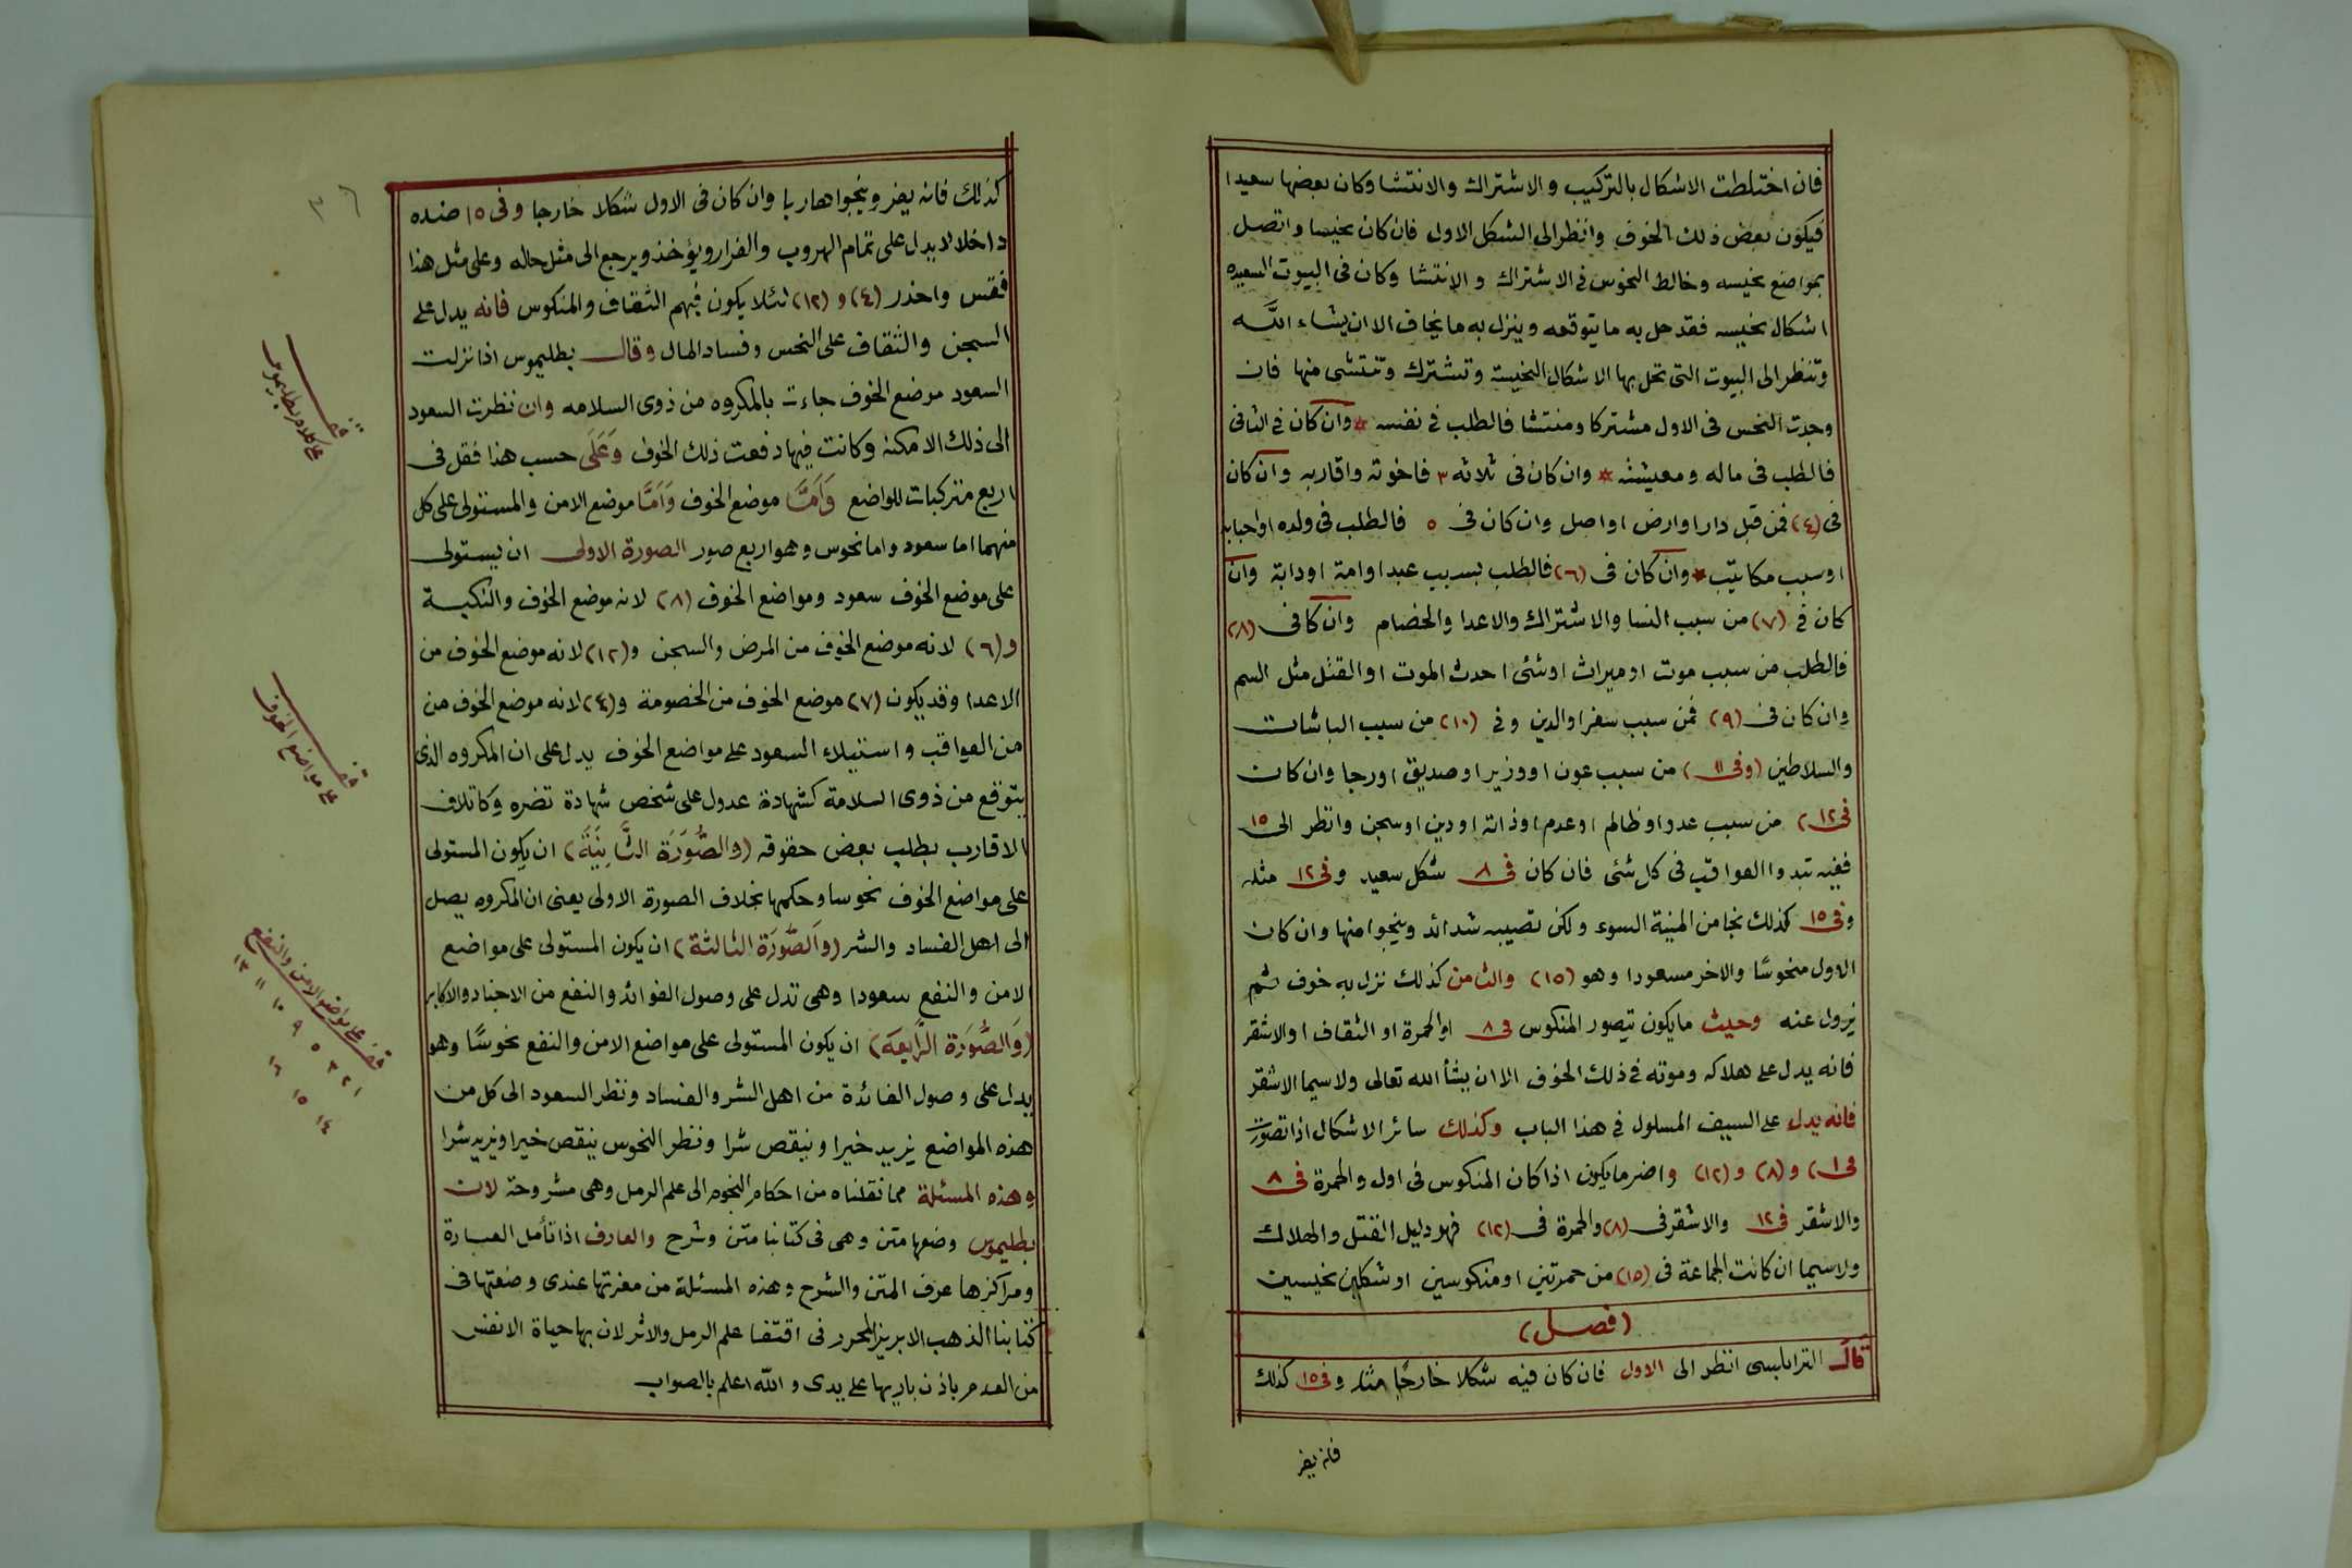 فان اختلطت الاشكال بالتركيب والاشتراك والانتشا وكان بعضها سعيدا
فيكون بعض ذلك الخوف وانظر الى الشكل الاول فان كان نحيسا واتصل
بمواضع نحيسه وخالط النحوس فى الاشتراك والانتشا وكان فى البيوت السعيده
اشكال نحيسه فقد حل به ما يتوقعه وينزل به ما يخاف الا ان يشاء الله
وتنظر الى البيوت التى تحل بها الاشكال النحيسة وتشترك وتنتشى منها فان
وجدت النحس فى الاول مشتركا ومنتشا فالطلب فى نفسه * وان كان فى الثانى
فالطلب فى ماله ومعيشته * وان كان فى ثلاثه ٣ فاخوته واقاربه وان كان
فى (٤) فمن قبل دار او ارض او اصل وان كان فى ٥ فالطلب فى ولده او احبابه
او سبب مكاتيب * وان كان فى (٦) فالطلب بسبب عبد او امة او دابة وان
كان فى (٧) من سبب النسا والاشتراك والاعدا والخصام وان كا فى (٨)
فالطلب من سبب موت او ميراث او شئى احدث الموت او القتل مثل السم
وان كان فى (٩) فمن سبب سفر او الدين وفى (١٠) من سبب الباشات
والسلاطين (وفى ١١) من سبب عون او وزير او صديق او رجا وان كان
فى ١٢) من سبب عدو او ظالم او عدم او ذاته او دين او سجن وانظر الى ١٥
ففيه تبدوا العواقب فى كل شئى فان كان فى ٨ شكل سعيد وفى ١٢ مثله
وفى ١٥ كذلك نجا من المنية السوء ولكن تصيبه شدائد وينجوا منها وان كان
الاول منحوسًا والاخر مسعودا وهو (١٥) والثامن كذلك نزل به خوف ثم
يزول عنه وحيث ما يكون تيصور المنكوس فى ٨ او الحمرة او الثقاف او الاشقر
فانه يدل على هلاكه وموته فى ذلك الخوف الا ان يشأ الله تعالى ولا سيما الاشقر
فانه يدل على السيف المسلول فى هذا الباب وكذلك سائر الاشكال اذا تصورت
فى ١) و(٨) و(١٢) واضر ما يكون اذا كان المنكوس فى اول والحمرة فى ٨
والاشقر فى ١٢ والاشقر فى (٨) والحمرة فى (١٢) فهو دليل القتل والهلاك
ولا سيما ان كانت الجماعة فى (١٥) من حمرتين او منكوسين او شكلين نحيسين
(فصل)
قال الترابلسى انظر الى الاول فان كان فيه شكلا خارجًا مثله وفى ١٥ كذلك
فانه يفر
كذلك فانه يفر وينجوا هاربا وان كان فى الاول شكلا خارجا وفى ١٥ ضده
داخلا لا يدل على تمام الهروب والفرار ويؤخذ ويرجع الى مثل حاله وعلى مثل هذا
فقس واحذر (٤) و (١٢) لئلا يكون فيهم الثقاف والمنكوس فانه يدل على
السجن والثقاف على النحس وفساد الحال وقال بطليموس اذا نزلت
السعود موضع الخوف جاءت بالمكروه من ذوى السلامه وان نظرت السعود
الى ذلك الامكنه وكانت فيها دفعت ذلك الخوف وعلى حسب هذا فقل فى
اربع متركبات للواضع وَاَمَّا موضع الخوف وَاَمَّا موضع الامن والمستولى على كل
منهما اما سعود واما نحوس وهو اربع صور الصورة الاولى ان يستولى
على موضع الخوف سعود ومواضع الخوف (٨) لانه موضع الخوف والنكبة
و(٦) لانه موضع الخوف من المرض والسجن و(١٢) لانه موضع الخوف من
الاعدا وقد يكون (٧) موضع الخوف من الخصومة و(٤) لانه موضع الخوف من
من العواقب واستيلاء السعود على مواضع الخوف يدل على ان المكروه الذى
يتوقع من ذوى السلامة كشهادة عدول على شخص شهادة تضره وكاتلاف
الاقارب بطلب بعض حقوقه (والصُّوَرَة الثَّانِيَة) ان يكون المستولى
على مواضع الخوف نحوسا وحكمها بخلاف الصورة الاولى يعنى ان المكروه يصل
الى اهل الفساد والشر (والصُّورَة الثالثة) ان يكون المستولى على مواضع
الامن والنفع سعودا وهى تدل على وصول الفوائد والنفع من الاجناد والاكابر
(وَالصُّورَة الرَّابِعَة) ان يكون المستولى على مواضع الامن والنفع نحوسًا وهو
يدل على وصول الفائدة من اهل الشر والفساد ونظر السعود الى كل من
هذه المواضع يزيد خيرا وينقص شرا ونظر النحوس ينقص خيرا ويزيد شرا
وهذه المسئلة مما نقلناه من احكام النجوم الى علم الرمل وهى مشروحة لان
بطليموس وضعها متن وهى فى كتابنا متن وشرح والعارف اذا تأمل العبارة
ومراكزها عرف المتن والشرح وهذه المسئلة من معزتها عندى وضعتها فى
كتابنا الذهب الابريز المحرر فى اقتفا علم الرمل والاثر لان بها حياة الانفس
من العدم باذن باريها على يدى والله اعلم بالصواب
قف على كلام بطليموس
قف على مواضع الخوف
قف على مواضع الامن والنفع
١ ٢ ٣ ٥ ٩ ١٠ ١١ ١٣
١٤ ١٥ ١٦